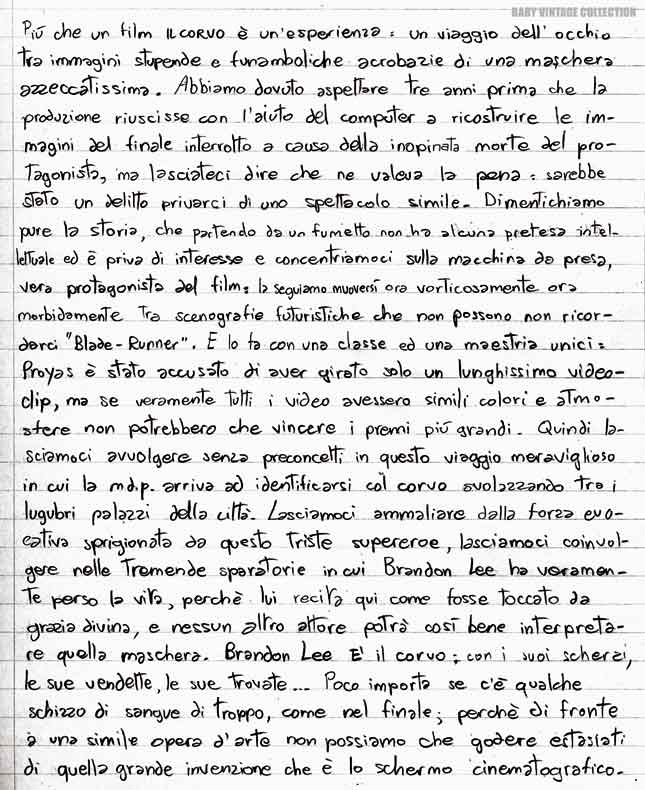 BABY VINTAGE COLLECTION
Più che un film IL CORVO è un'esperienza: un viaggio dell'occhio
tra immagini stupende e funamboliche acrobazie di una maschera
azzeccatissima. Abbiamo dovuto aspettare tre anni prima che la
produzione riuscisse con l'aiuto del computer a ricostruire le im-
magini del finale interrotto a causa della inopinata morte del pro-
tagonista, ma lasciateci dire che ne valeva la pena: sarebbe
stato un delitto privarci di uno spettacolo simile. Dimentichiamo
pure la storia, che partendo da un fumetto non ha alcuna pretesa intel-
lettuale ed è priva di interesse e concentriamoci sulla macchina da presa,
vera protagonista del film: la seguiamo muoversi ora vorticosamente ora
morbidamente tra scenografie futuristiche che non possono non ricor-
darci "Blade-Runner". E lo fa con una classe ed una maestria unici:
Proyas è stato accusato di aver girato solo un lunghissimo video-
clip, ma se veramente tutti i video avessero simili colori e atmo-
sfere non potrebbero che vincere i premi più grandi. Quindi la-
sciamoci avvolgere senza preconcetti in questo viaggio meraviglioso
in cui la m.d.p. arriva ad identificarsi col corvo svolazzando tra i
lugubri palazzi della città. Lasciamoci ammaliare dalla forza evo-
cativa sprigionata da questo triste supereroe, lasciamoci coinvol-
gere nelle tremende sparatorie in cui Brandon Lee ha veramen-
te perso la vita, perchè lui recita qui come fosse toccato da
grazia divina, e nessun altro attore potrà così bene interpreta-
re quella maschera. Brandon Lee E' il corvo; con i suoi scherzi,
le sue vendette, le sue trovate... Poco importa se c'è qualche
schizzo di sangue di troppo, come nel finale; perchè di fronte
a una simile opera d'arte non possiamo che godere estasiati
di quella grande invenzione che è lo schermo cinematografico.